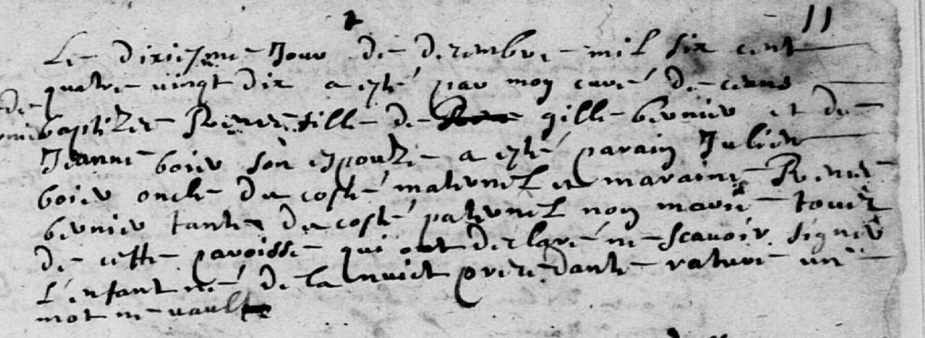 11
Le dixiesme Jour de decembre mil six cent
quatre vingt dix a esté par moy curé de ceans
baptizee Renee fille de gille bernier et de
Jeanne boiev son espouze a esté parain Julien
boiev oncle du costé maternel et maraine Renee
bernier tante du costé paternel non marié touts
de cette paroisse qui ont declaré ne scavoir signer
L'enfant né de la nuict precedante rature un
mot ne vault